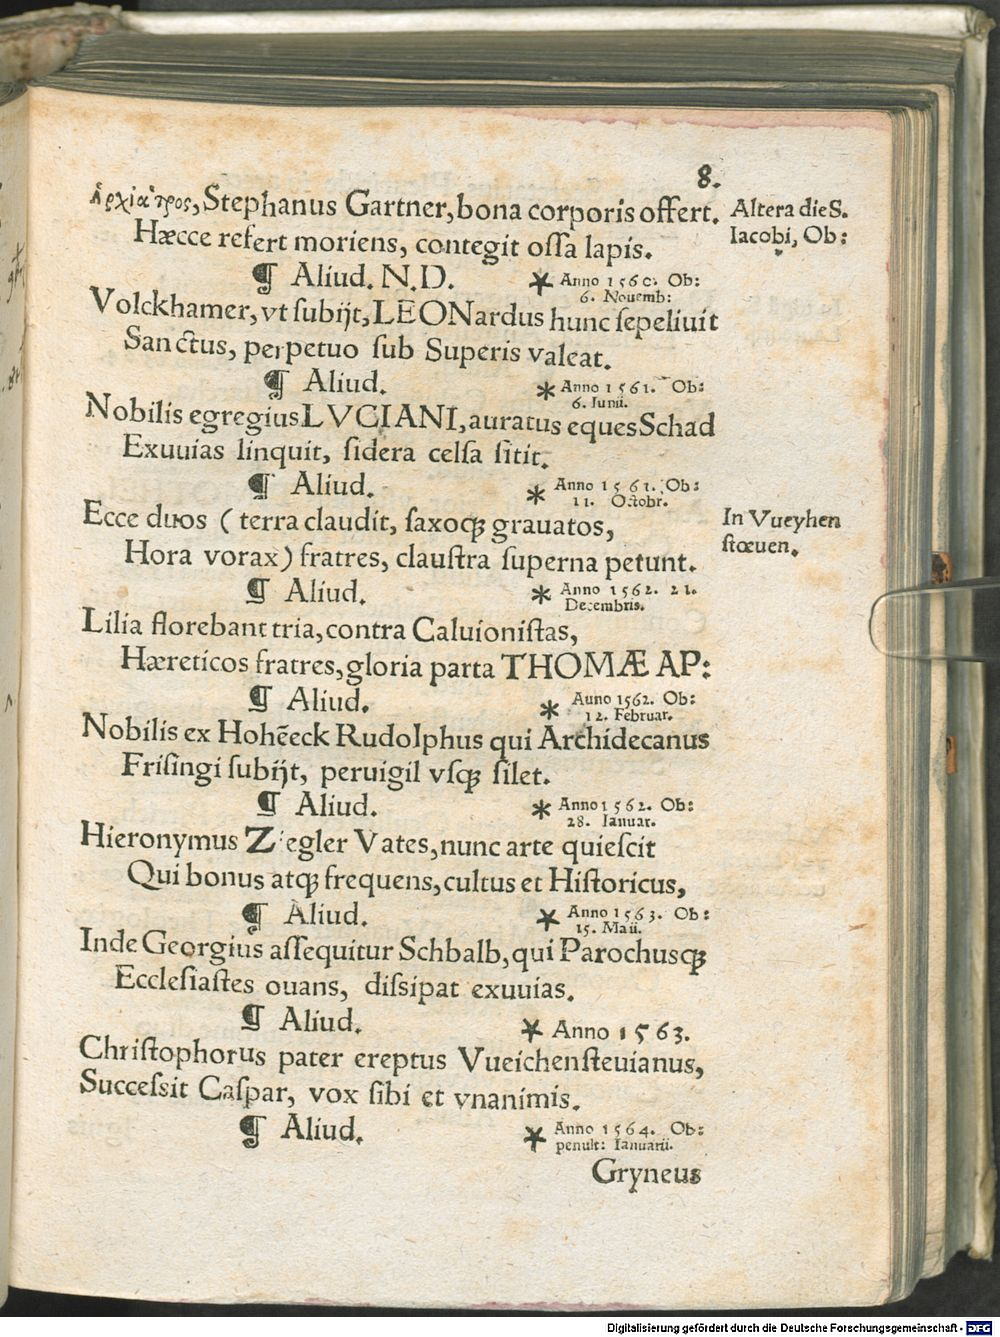 8.
Ἀρχίατρος, Stephanus Gartner, bona corporis offert.
Altera die S.
Iacobi, Ob:
Hæcce refert moriens, contegit ossa lapis.
¶ Aliud. N.D. * Anno 1560. Ob:
6. Nouemb:
Volckhamer, vt subijt, LEONardus hunc sepeliuit
Sanctus, perpetuo sub Superis valeat.
¶ Aliud. * Anno 1561. Ob:
6. Iunii.
Nobilis egregius LVCIANI, auratus eques Schad
Exuuias linquit, sidera celsa sitit.
¶ Aliud. * Anno 1561. Ob:
11. Octobr.
Ecce duos ( terra claudit, saxoqꝫ grauatos,
In Vueyhen
stœuen.
Hora vorax) fratres, claustra superna petunt.
¶ Aliud. * Anno 1562. 21.
Decembris.
Lilia florebant tria, contra Caluionistas,
Hæreticos fratres, gloria parta THOMÆ AP:
¶ Aliud. * Auno 1562. Ob:
12. Februar.
Nobilis ex Hohẽeck Rudolphus qui Archidecanus
Frisingi subijt, peruigil vsqꝫ silet.
¶ Aliud. * Anno 1562. Ob:
28. Ianuar.
Hieronymus Ziegler Vates, nunc arte quiescit
Qui bonus atqꝫ frequens, cultus et Historicus,
¶ Aliud. * Anno 1563. Ob:
15. Maii.
Inde Georgius assequitur Schbalb, qui Parochusqꝫ
Ecclesiastes ouans, dissipat exuuias.
¶ Aliud. * Anno 1563.
Christophorus pater ereptus Vueichensteuianus,
Successit Caspar, vox sibi et vnanimis.
¶ Aliud. * Anno 1564. Ob:
penult: Ianuarii.
Gryneus
Digitalisierung gefördert durch die Deutsche Forschungsgemeinschaft - DFG